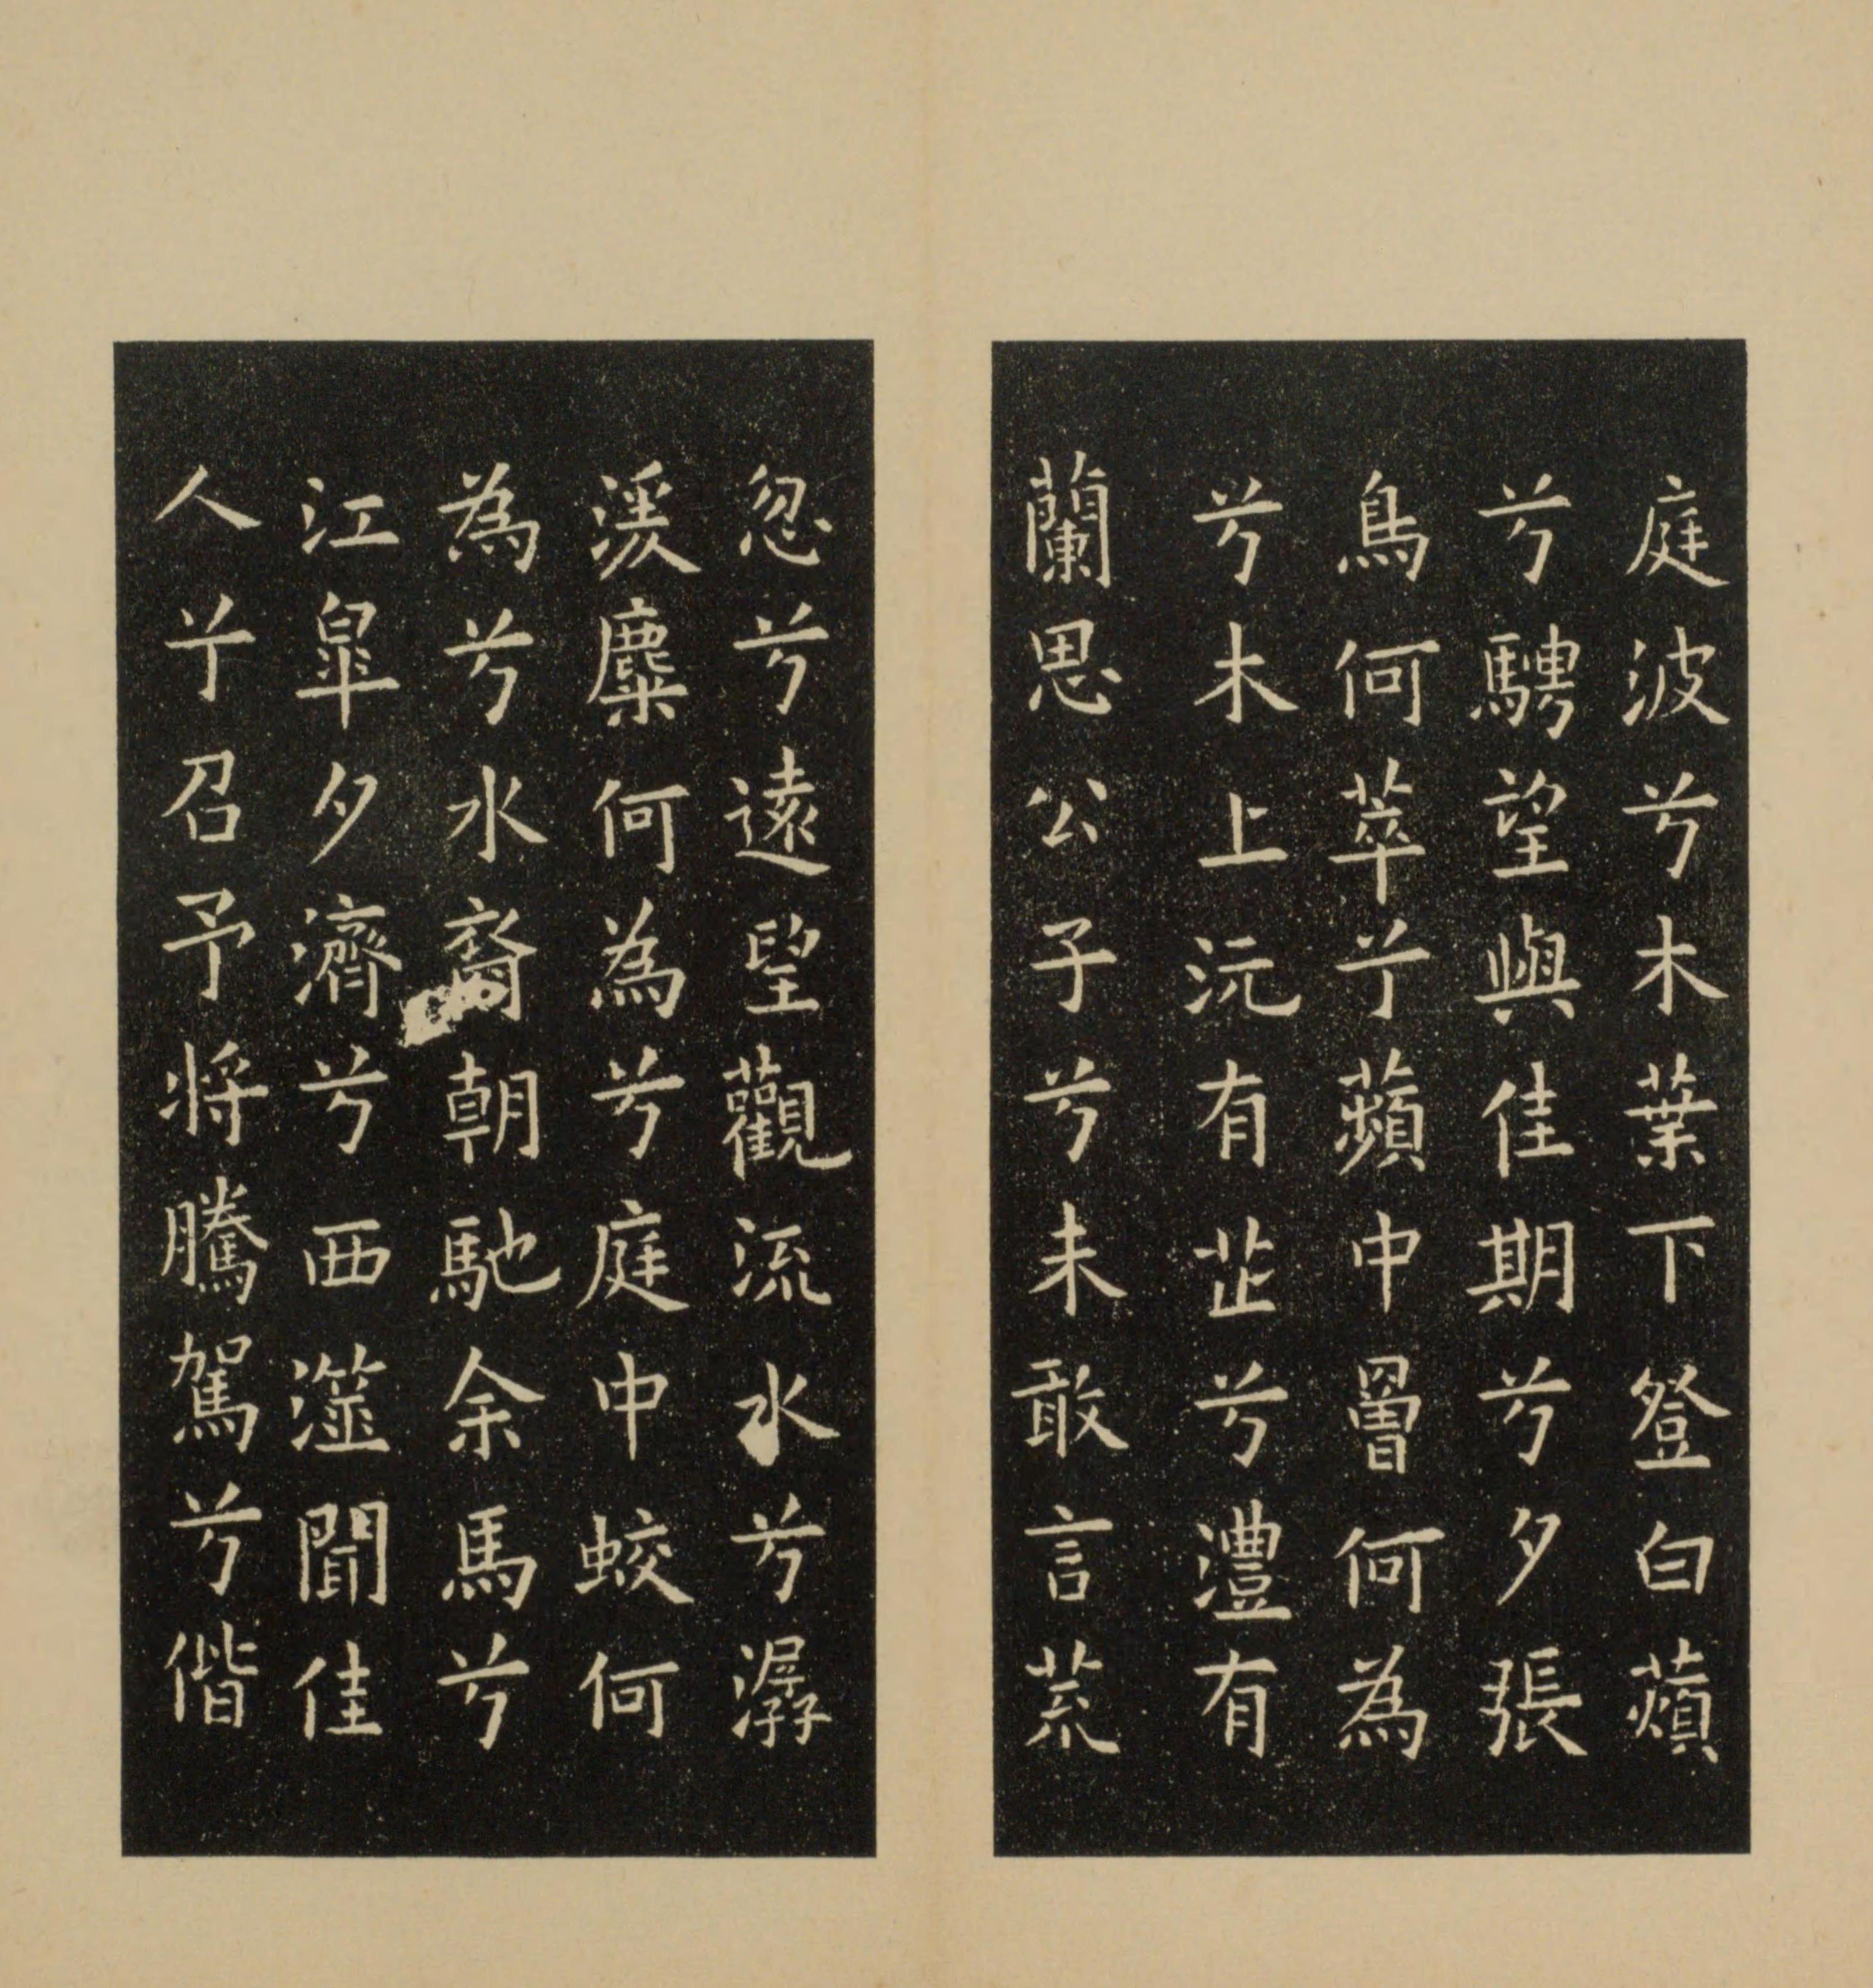 庭波兮木葉下登白蘋
兮騁望與佳期兮夕張
鳥何萃兮蘋中罾何為
兮木上沅有芷兮澧有
蘭思公子兮未敢言荒
忽兮遠望觀流水兮潺
湲麋何為兮庭中蛟何
為兮水裔朝馳余馬兮
江皐夕濟兮西澨聞佳
人兮召予將騰駕兮偕